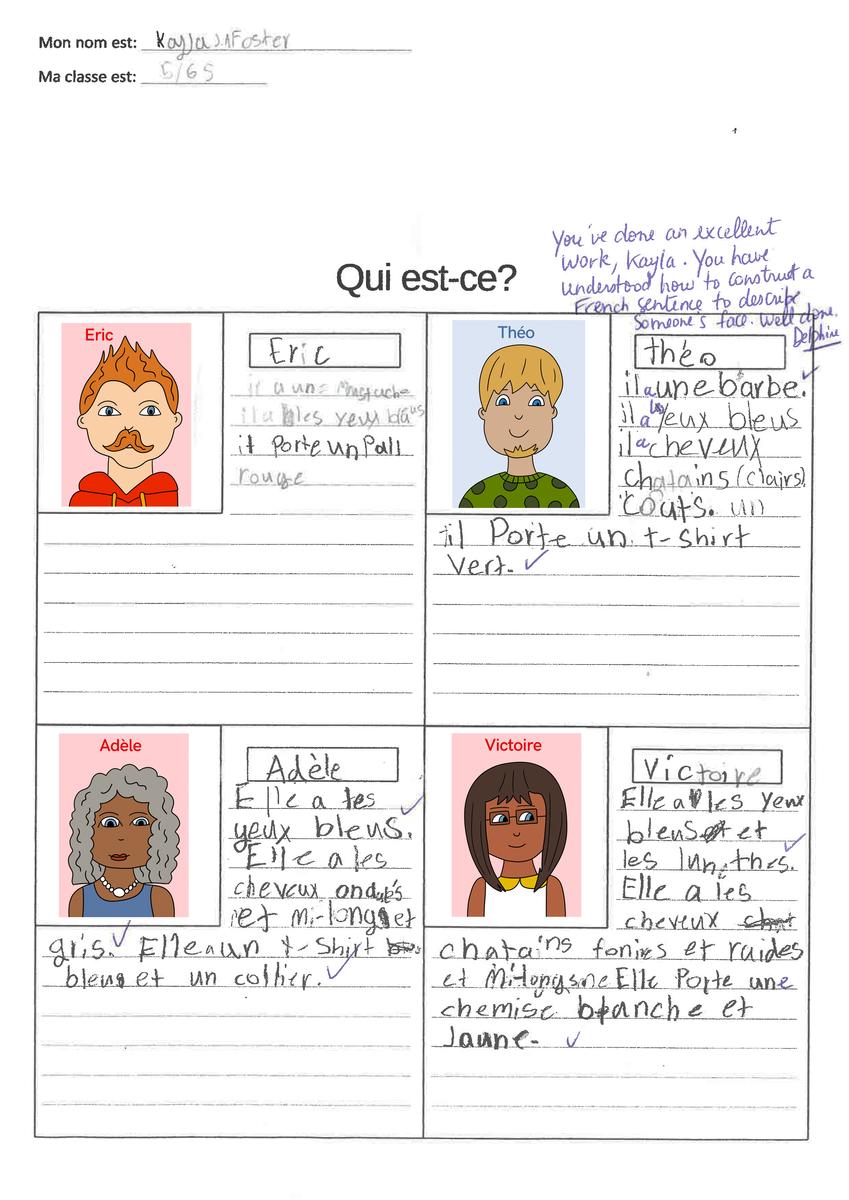 Mon nom est: Kayla J.A Foster
Ma classe est: 5/6S
You've done an excellent
work, Kayla. You have
understood how to construct a
French sentence to describe
someone's face. Well done.
Delphine
Qui est-ce?
Eric
Eric
il a une Mustache
il a les yeux
it Porte un Pall
rouge
Théo
théo
il a une barbe.
il a les yeux bleus
il a cheveux
chatains (clairs)
Couts. un
til Porte un t-shirt
Vert.
Adèle
Adèle
Elle a tes
yeux bleus.
Elle a les
cheveux ondulés
et mi-longs et
gris. Elle a un t-Shirt
bleus et un collier.
Victoire
Victoire
Elle a les yeux
bleus et
les
Elle a les
cheveux
chatains et raides
et Elle Porte une
chemise blanche et
Jaune.